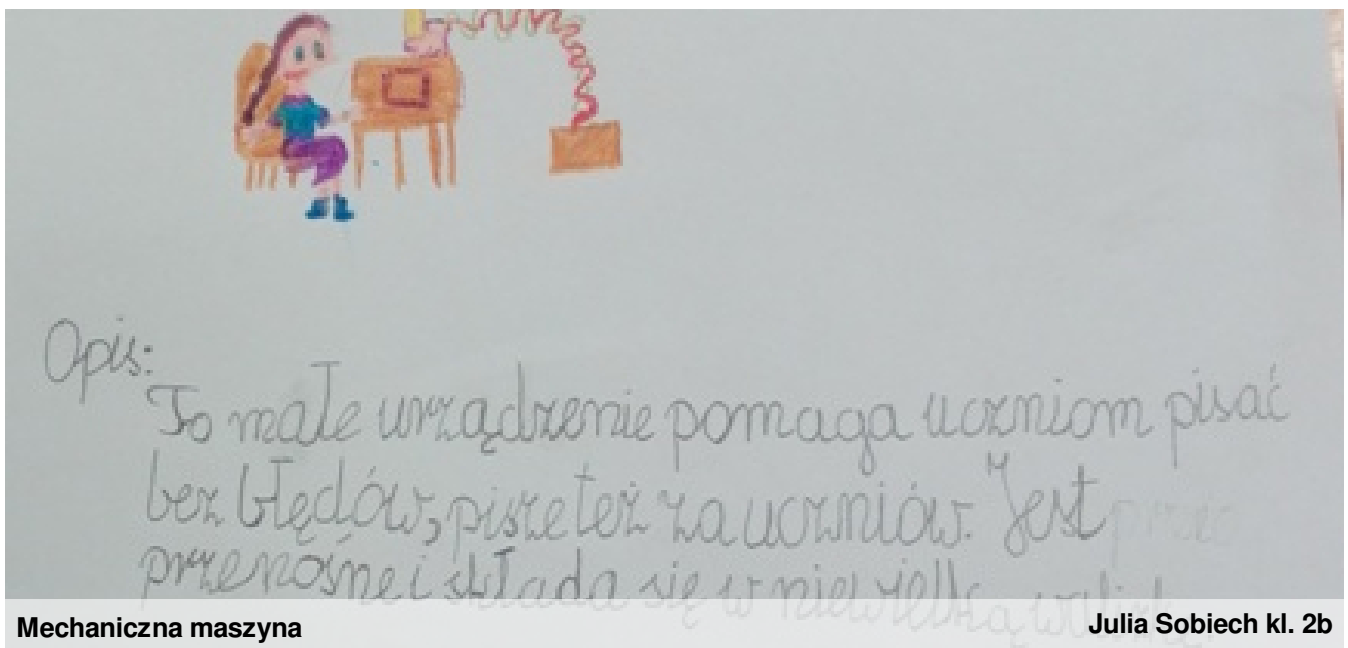 Opis:
To małe urządzenie pomaga uczniom pisać
bez błędów, pisze też za uczniów. Jest
przenośne i składa się w niewielką walizkę.
Mechaniczna maszyna
Julia Sobiech kl. 2b